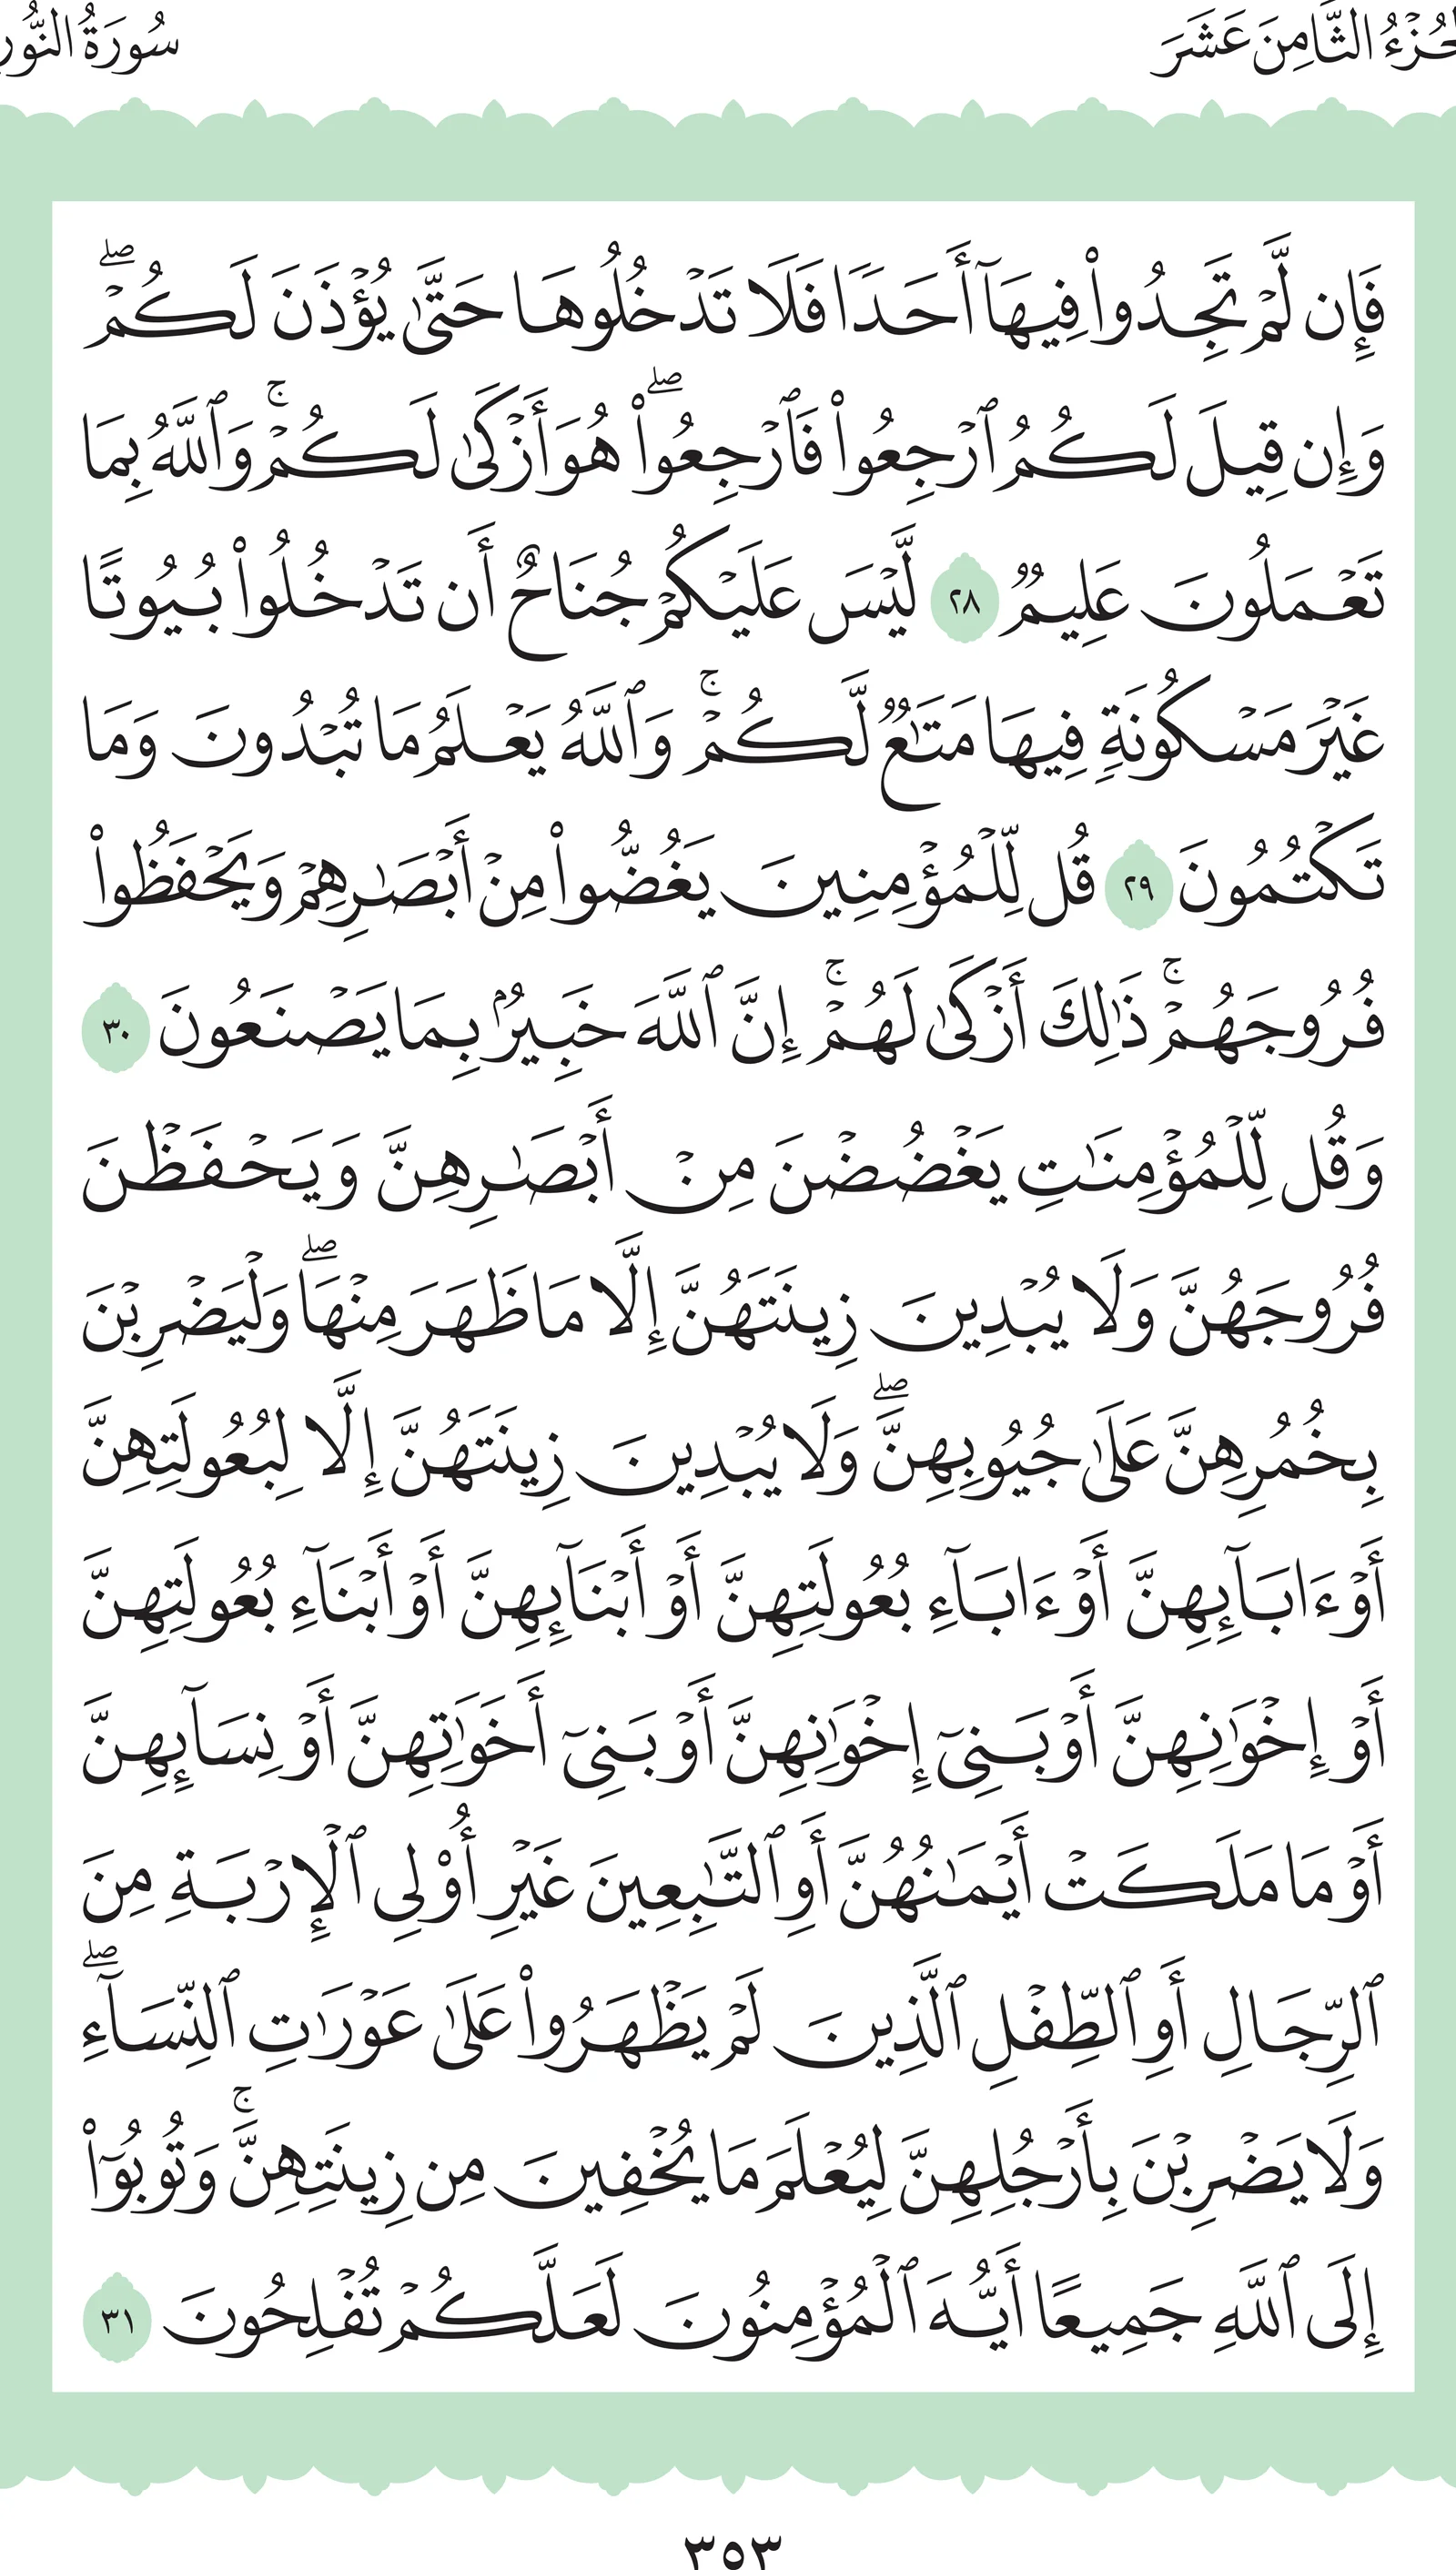 الجُزْءُ الثَّامِنَ عَشَرَ
سُورَةُ النُّورِ
فَإِن لَّمْ تَجِدُوا۟ فِيهَآ أَحَدًا فَلَا تَدْخُلُوهَا حَتَّىٰ يُؤْذَنَ لَكُمْ ۖ
وَإِن قِيلَ لَكُمُ ٱرْجِعُوا۟ فَٱرْجِعُوا۟ ۖ هُوَ أَزْكَىٰ لَكُمْ ۚ وَٱللَّهُ بِمَا
تَعْمَلُونَ عَلِيمٌ ٢٨ لَّيْسَ عَلَيْكُمْ جُنَاحٌ أَن تَدْخُلُوا۟ بُيُوتًا
غَيْرَ مَسْكُونَةٍ فِيهَا مَتَـٰعٌ لَّكُمْ ۚ وَٱللَّهُ يَعْلَمُ مَا تُبْدُونَ وَمَا
تَكْتُمُونَ ٢٩ قُل لِّلْمُؤْمِنِينَ يَغُضُّوا۟ مِنْ أَبْصَـٰرِهِمْ وَيَحْفَظُوا۟
فُرُوجَهُمْ ۚ ذَٰلِكَ أَزْكَىٰ لَهُمْ ۚ إِنَّ ٱللَّهَ خَبِيرٌۢ بِمَا يَصْنَعُونَ ٣٠
وَقُل لِّلْمُؤْمِنَـٰتِ يَغْضُضْنَ مِنْ أَبْصَـٰرِهِنَّ وَيَحْفَظْنَ
فُرُوجَهُنَّ وَلَا يُبْدِينَ زِينَتَهُنَّ إِلَّا مَا ظَهَرَ مِنْهَا ۖ وَلْيَضْرِبْنَ
بِخُمُرِهِنَّ عَلَىٰ جُيُوبِهِنَّ ۖ وَلَا يُبْدِينَ زِينَتَهُنَّ إِلَّا لِبُعُولَتِهِنَّ
أَوْ ءَابَآئِهِنَّ أَوْ ءَابَآءِ بُعُولَتِهِنَّ أَوْ أَبْنَآئِهِنَّ أَوْ أَبْنَآءِ بُعُولَتِهِنَّ
أَوْ إِخْوَٰنِهِنَّ أَوْ بَنِىٓ إِخْوَٰنِهِنَّ أَوْ بَنِىٓ أَخَوَٰتِهِنَّ أَوْ نِسَآئِهِنَّ
أَوْ مَا مَلَكَتْ أَيْمَـٰنُهُنَّ أَوِ ٱلتَّـٰبِعِينَ غَيْرِ أُو۟لِى ٱلْإِرْبَةِ مِنَ
ٱلرِّجَالِ أَوِ ٱلطِّفْلِ ٱلَّذِينَ لَمْ يَظْهَرُوا۟ عَلَىٰ عَوْرَٰتِ ٱلنِّسَآءِ ۖ
وَلَا يَضْرِبْنَ بِأَرْجُلِهِنَّ لِيُعْلَمَ مَا يُخْفِينَ مِن زِينَتِهِنَّ ۚ وَتُوبُوٓا۟
إِلَى ٱللَّهِ جَمِيعًا أَيُّهَ ٱلْمُؤْمِنُونَ لَعَلَّكُمْ تُفْلِحُونَ ٣١
٣٥٣